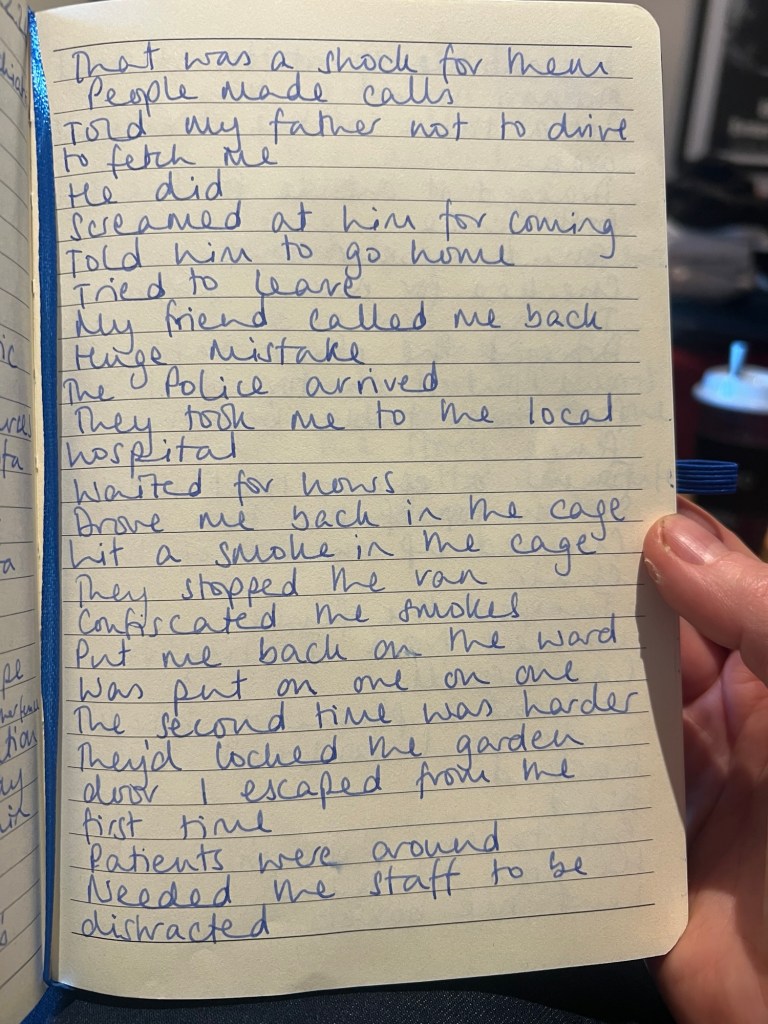 That was a shock for them
People made calls
Told my father not to drive
to fetch me
He did
Screamed at him for coming
Told him to go home
Tried to leave
My friend called me back
Huge mistake
The Police arrived
They took me to the local
hospital
Waited for hours
Drove me back in the cage
Lit a smoke in the cage
They stopped the van
Confiscated the smokes
Put me back on the ward
Was put on one on one
The second time was harder
They'd locked the garden
door I escaped from the
first time
Patients were around
Needed the staff to be
distracted